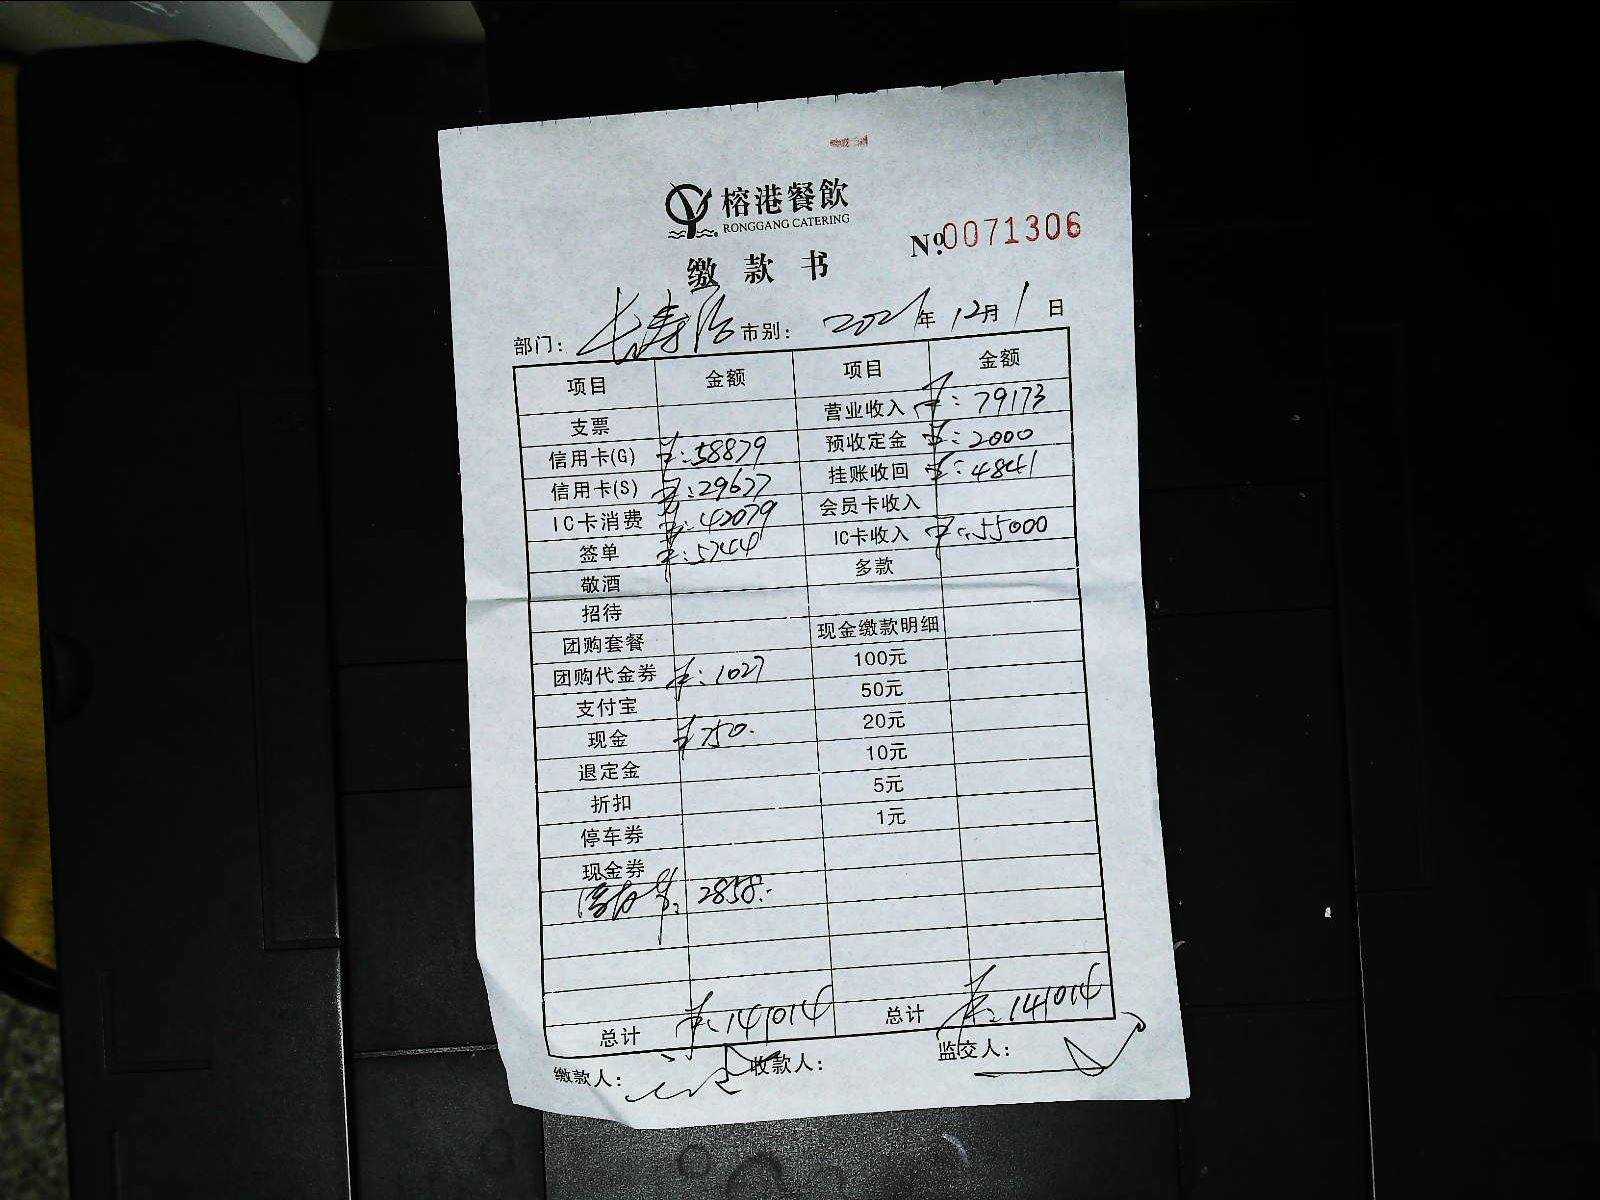 榕港餐飲
RONGGANG CATERING
No.0071306
缴款书
部门：长寿 市别： 2021年12月1日
项目 金额 项目 金额
支票 营业收入 ￥：79173
信用卡(G) ￥：58879 预收定金 ￥：2000
信用卡(S) ￥：29677 挂账收回 ￥：4841
IC卡消费 ￥：42079 会员卡收入
签单 ￥：5744 IC卡收入 ￥：55000
敬酒 多款
招待
团购套餐 现金缴款明细
团购代金券 ￥：1027 100元
支付宝 50元
现金 ￥750. 20元
退定金 10元
折扣 5元
停车券 1元
现金券
2858.
总计 ￥：141014 总计 ￥：141014
缴款人： 收款人： 监交人：